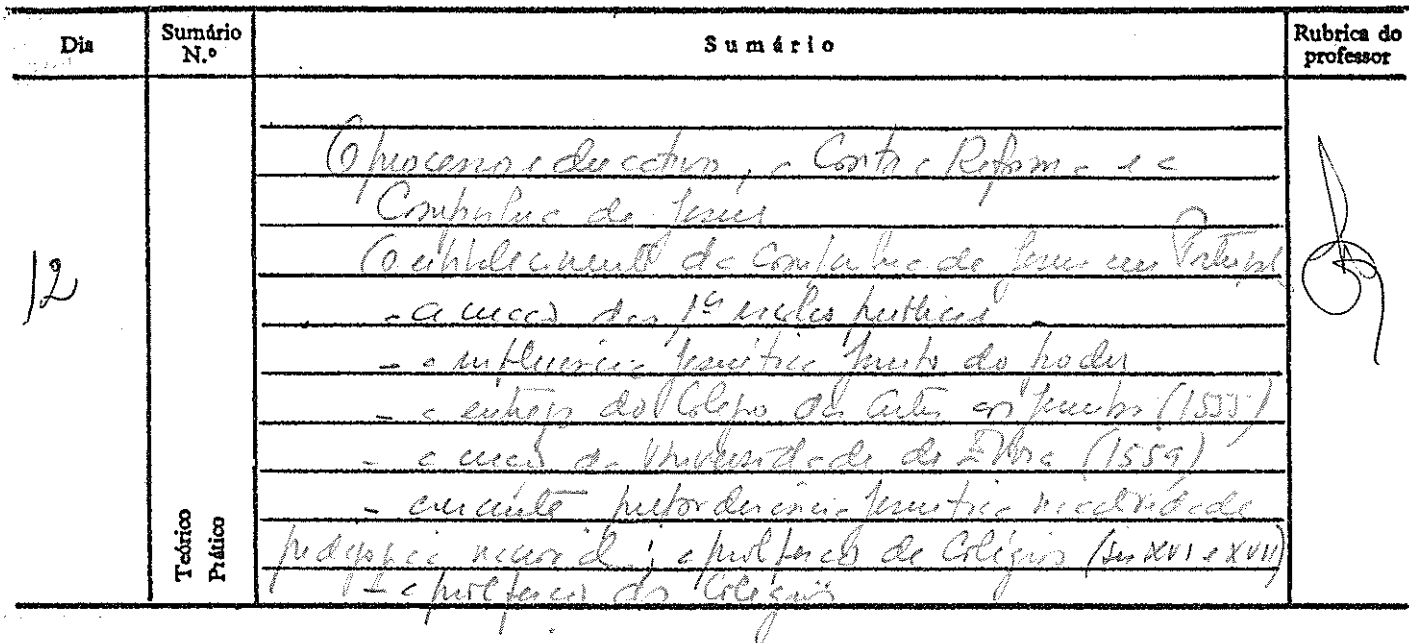 Dia Sumário N.º Sumário Rubrica do professor
O processo educativo, a Contra Reforma e a
Companhia de Jesus
O estabelecimento da Companhia de Jesus em Portugal
12
- a criação das 1as escolas públicas
- a influência jesuítica junto do poder
- a entrega do Colégio das Artes aos jesuítas (1555)
- a criação da Universidade de Évora (1559)
- crescente preponderância jesuítica na actividade
pedagógica nacional; a proliferação de Colégios (sécs XVI e XVII)
- a proliferação dos Colégios
Teórico
Prático